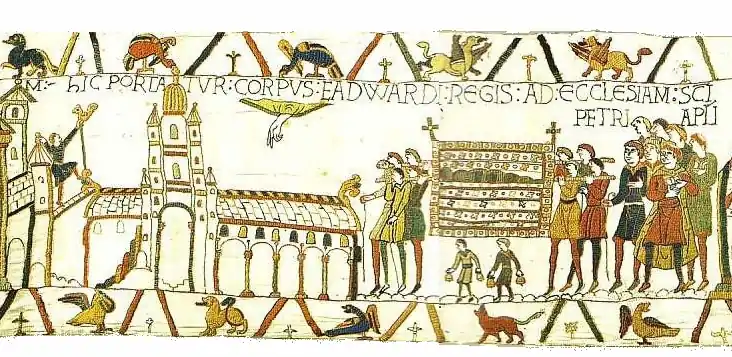 M:- hIC PORTATVR: CORPVS: EADWARDI: REGIS: AD: ECCLESIAM: SCI
PETRI APLI